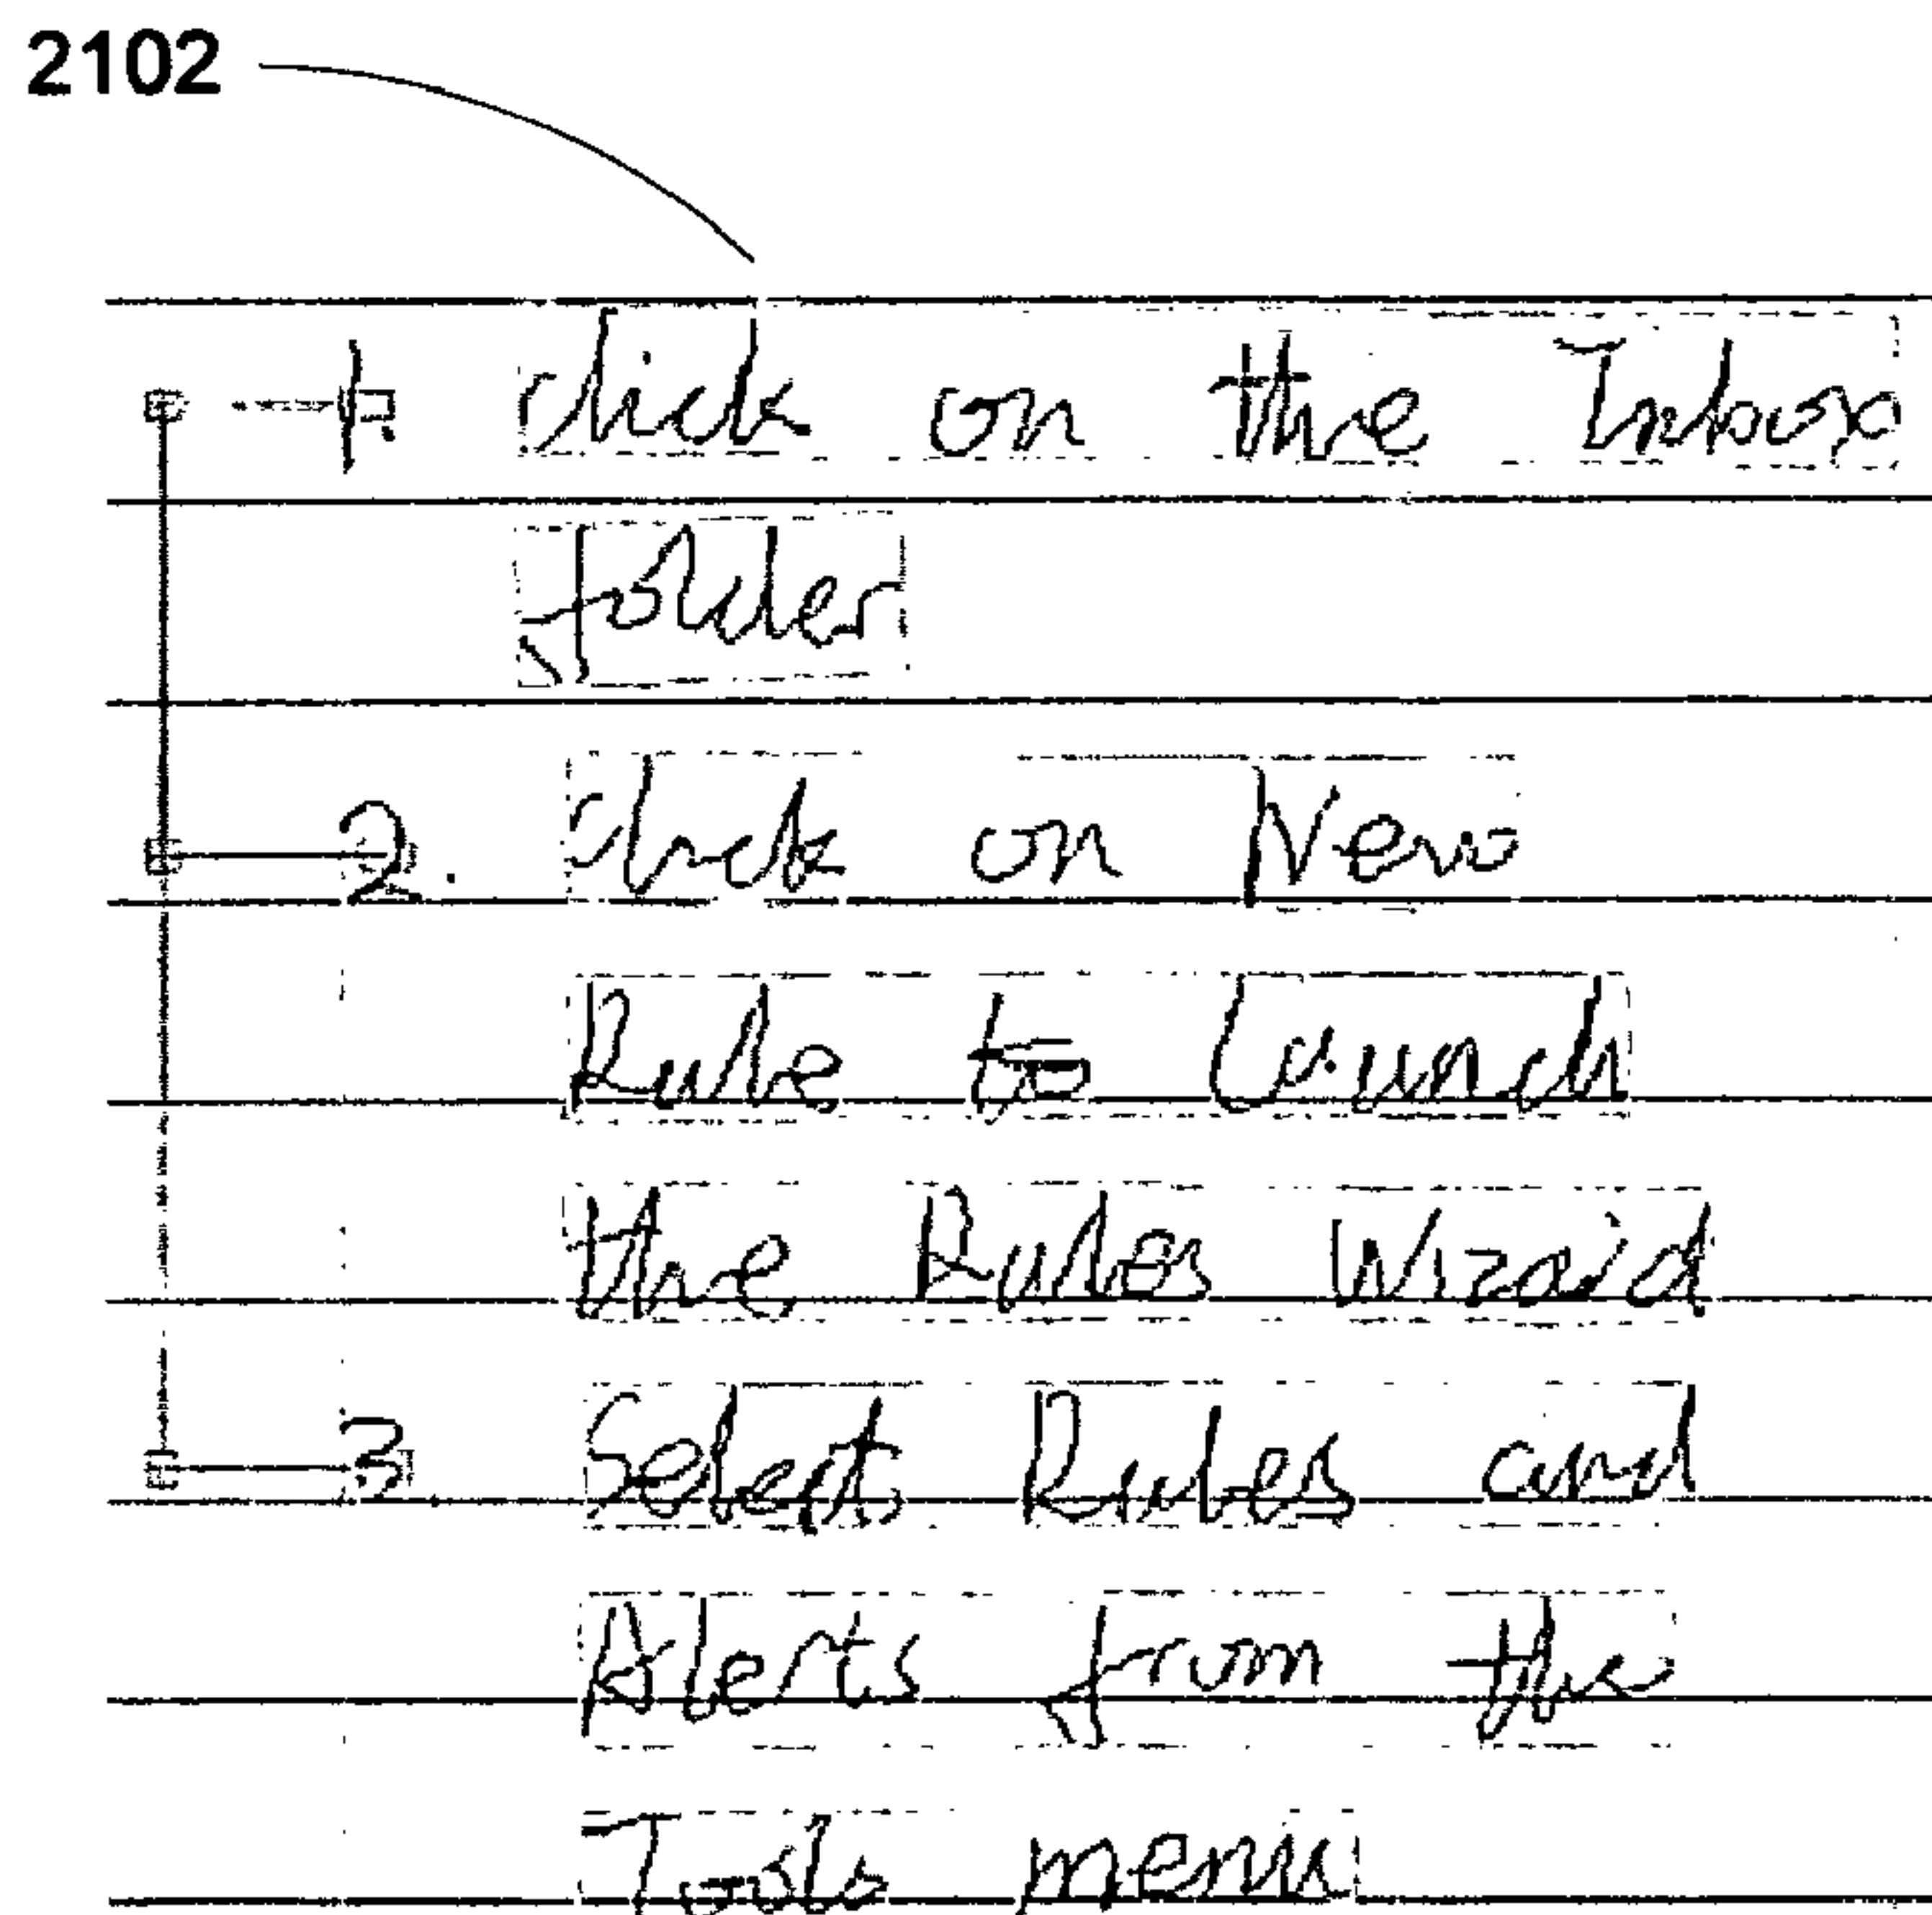 2102
1. click on the Inbox
folder
2. click on New
Rule to launch
the Rules Wizard
3 Select Rules and
Alerts from the
Tools menu